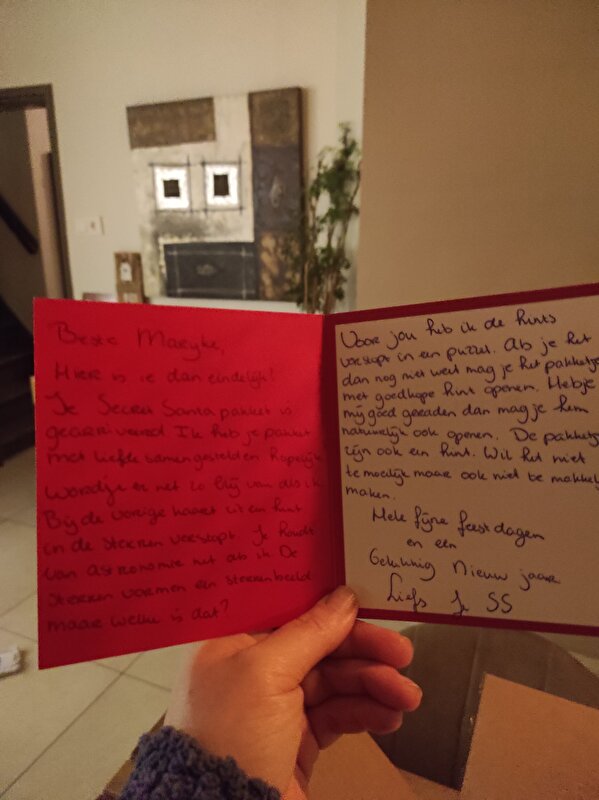 Beste Maryke,
Hier is ie dan eindelijk!
Je Secret Santa pakket is
gearriveerd Ik heb je pakket
met liefde samengesteld en Hopelijk
wordt je er net zo blij van als ik
Bij de vorige kaart zit een hint
in de sterren verstopt. Je houdt
van astronomie net als ik. De
sterren vormen een sterrenbeeld
maar welke is dat?
Voor jou heb ik de hints
verstopt in een puzzel. Als je het
dan nog niet weet mag je het pakketje
met goedkope hint openen. Heb je
mij goed geraden dan mag je hem
natuurlijk ook openen. De pakketjes
zijn ook een hint. Wil het niet
te moeilijk maar ook niet te makkelijk
maken.
Hele fijne feestdagen
en een
Gelukkig Nieuw jaar
Liefs Je SS